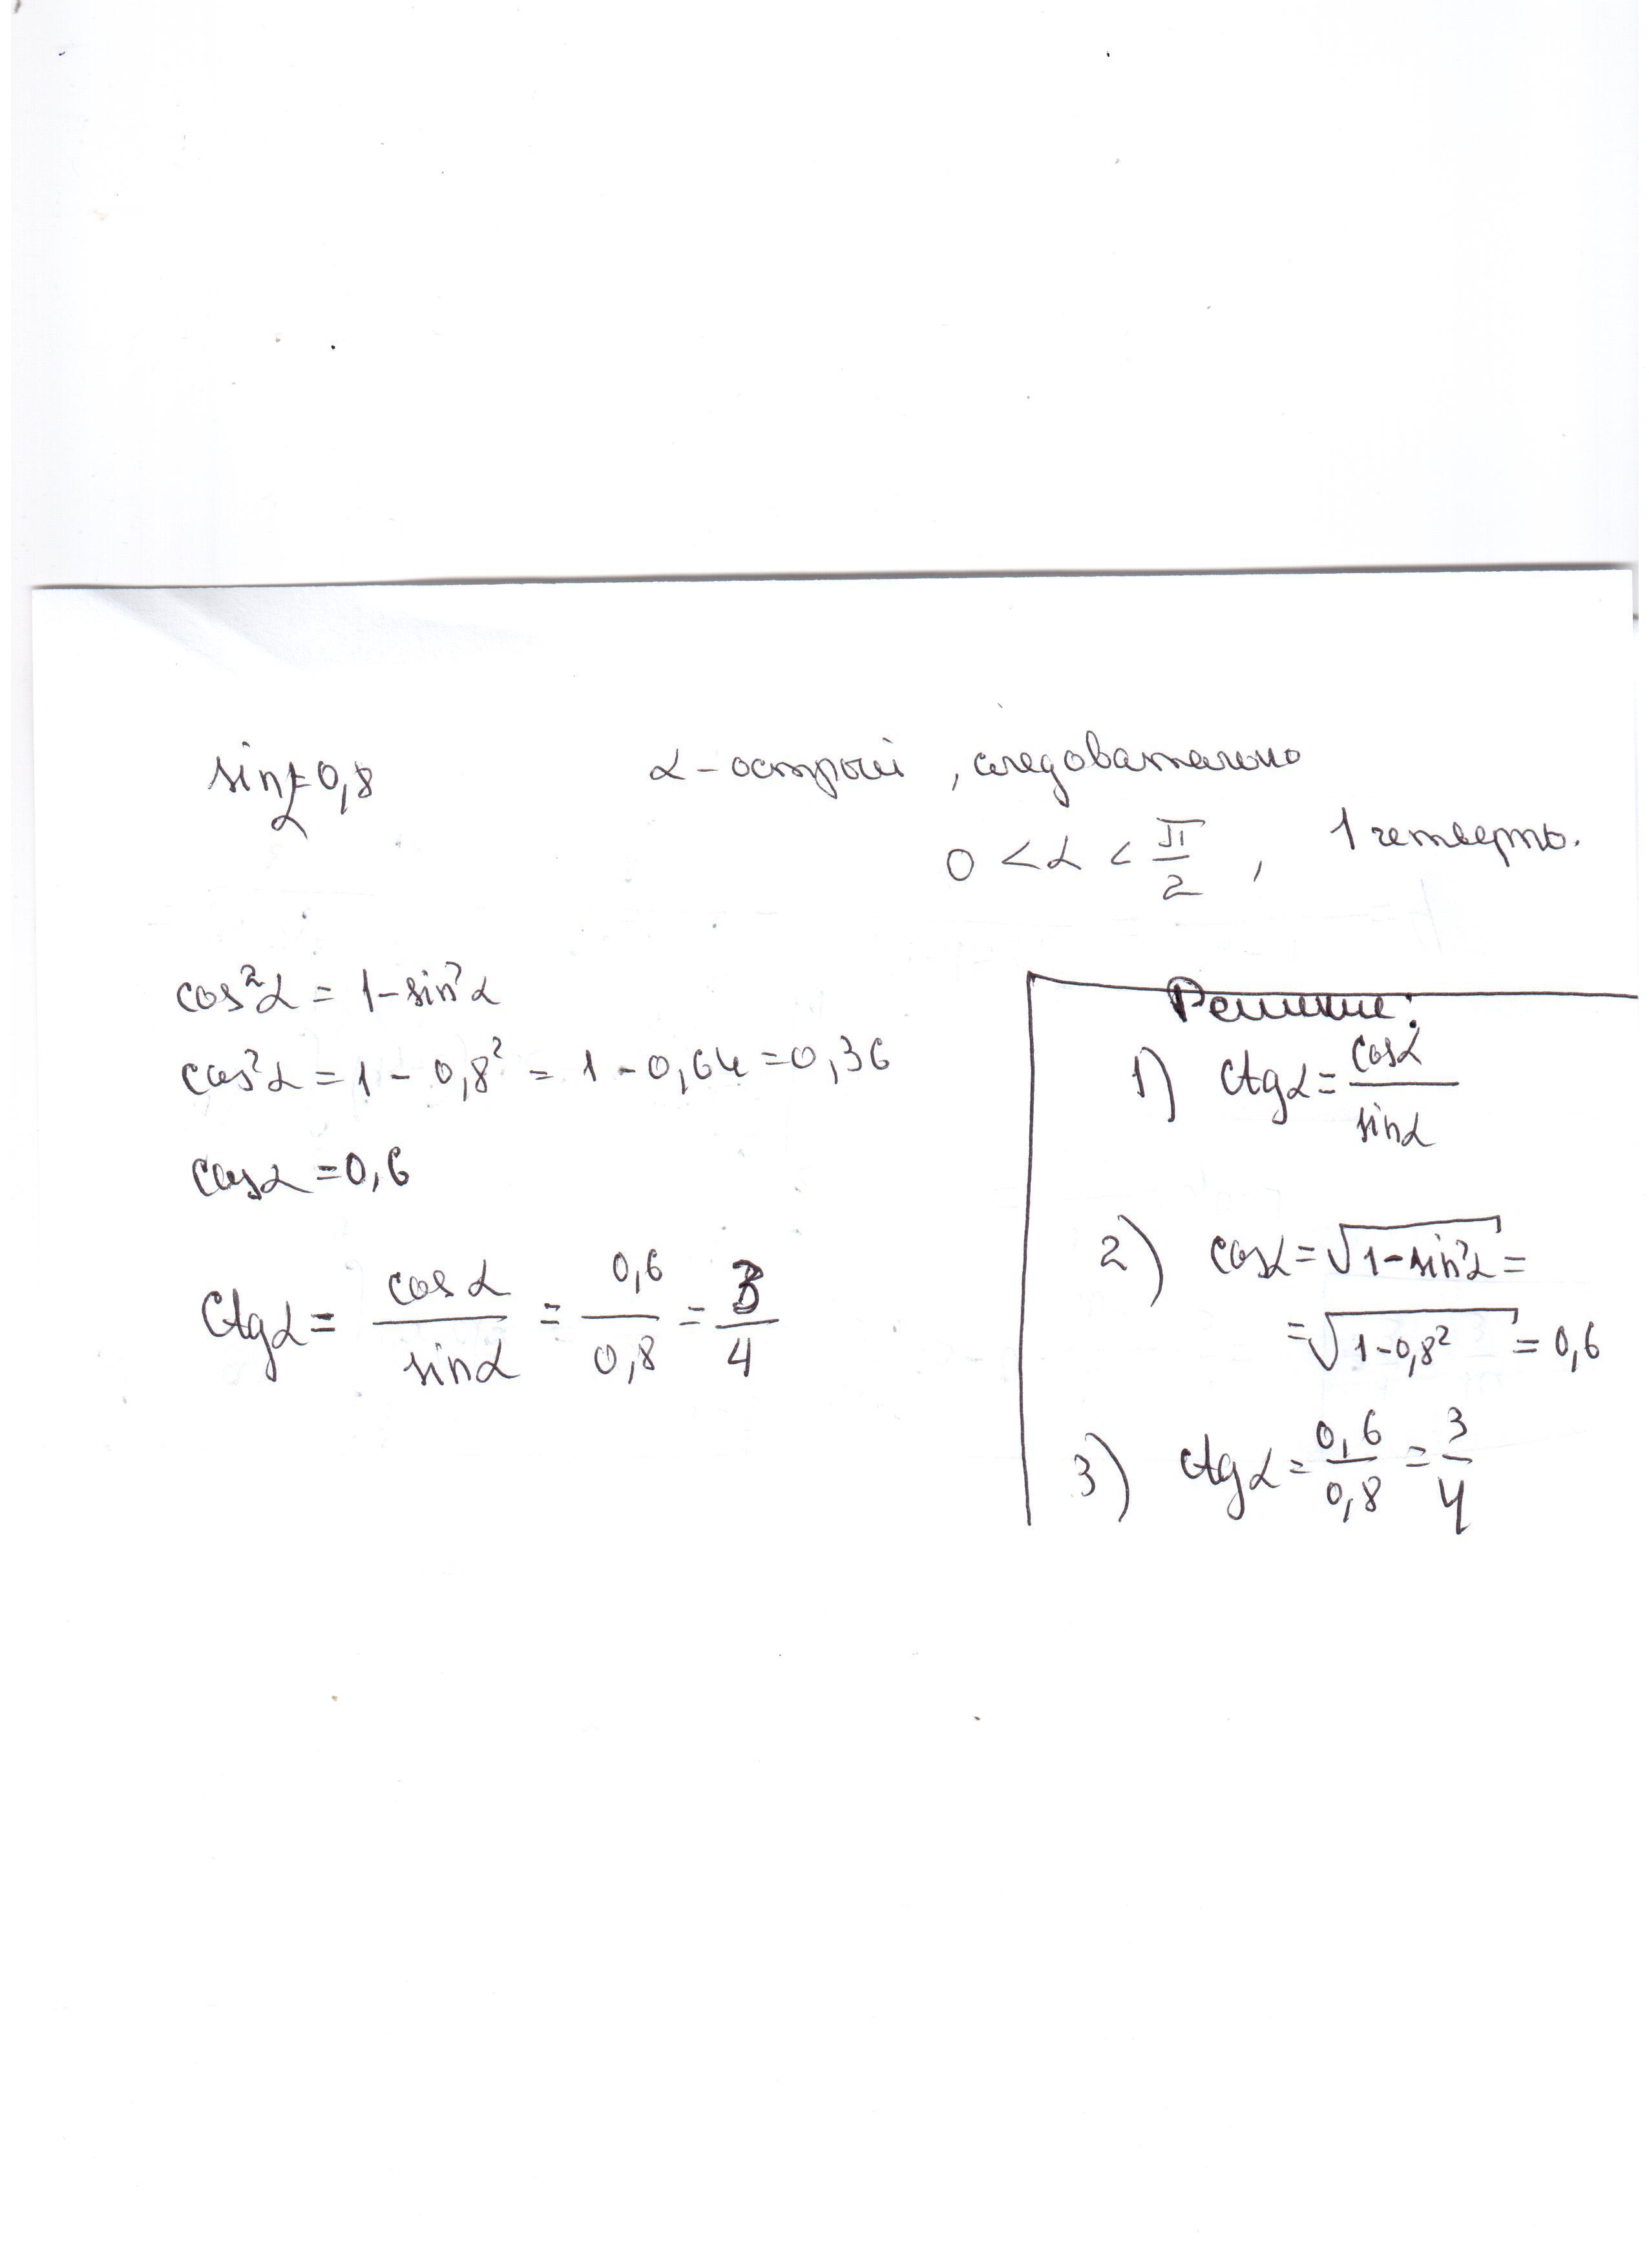 sin α = 0,8
α - острый, следовательно
0 < α < π/2, 1 четверть.
cos²α = 1 - sin²α
cos²α = 1 - 0,8² = 1 - 0,64 = 0,36
cos α = 0,6
Ctg α = cos α / sin α = 0,6 / 0,8 = 3/4
Решение:
1) Ctg α = cos α / sin α
2) cos α = √(1 - sin²α) =
= √(1 - 0,8²) = 0,6
3) ctg α = 0,6 / 0,8 = 3/4